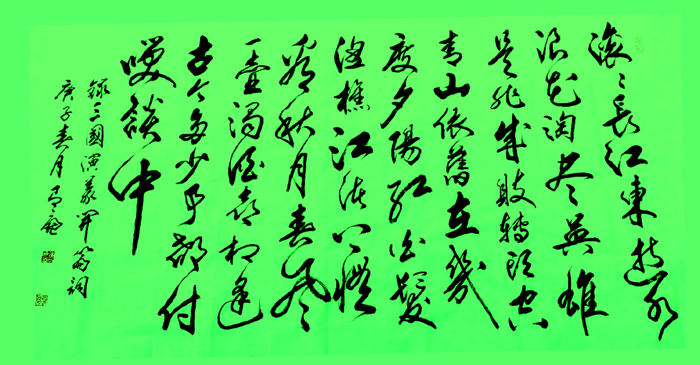 滚々长江东逝水
浪花淘尽英雄
是非成败转头空
青山依旧在几
度夕阳红白发
渔樵江渚上惯
看秋月春风
一壶浊酒喜相逢
古今多少事都付
笑谈中
录三国演义开篇词
庚子春月